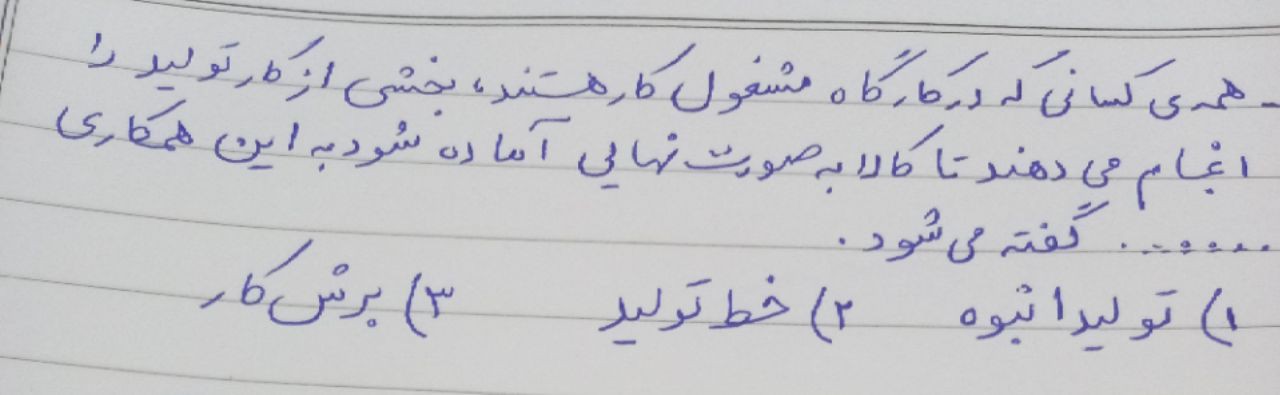 - همه ی کسانی که در کارگاه مشغول کار هستند، بخشی از کار تولید را
انجام می دهند تا کالا به صورت نهایی آماده شود به این همکاری
....... گفته می شود.
۱) تولید انبوه ۲) خط تولید ۳) برش کار